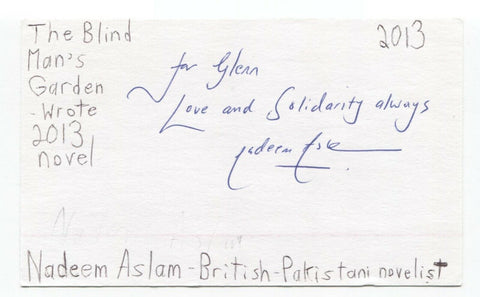 The Blind
Man's
Garden
- Wrote
2013
novel
2013
for Glenn
Love and Solidarity always
Nadeem Aslam - British-Pakistani novelist